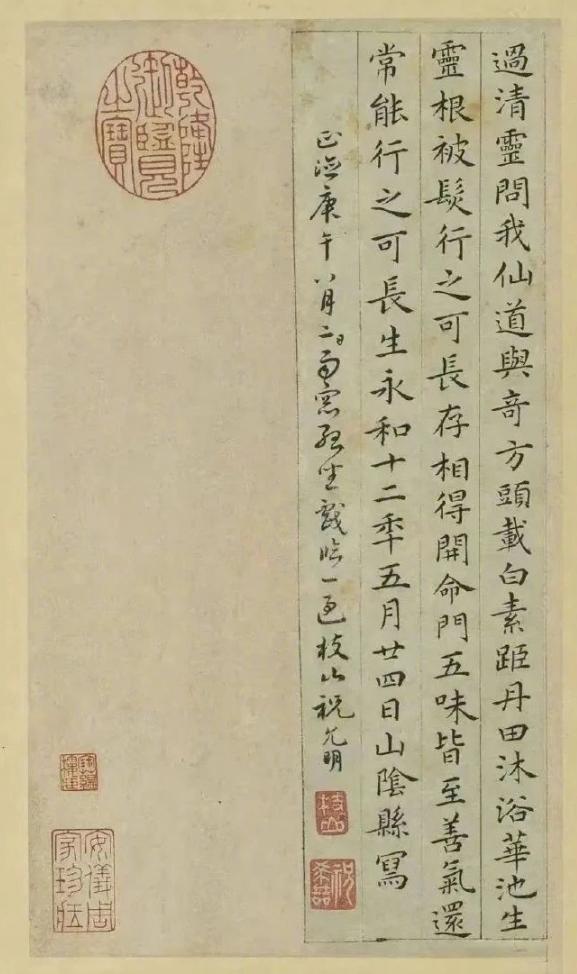 過清靈問我仙道與竒方頭載白素距丹田沐浴華池生
靈根被髮行之可長存相得開命門五味皆至善氣還
常能行之可長生永和十二秊五月廿四日山陰縣寫
正德庚午八月二日雨窓孤坐戲臨一過枝山祝允明
枝山
祝希哲
乾隆
御覽
之寶
安儀周
家珍藏